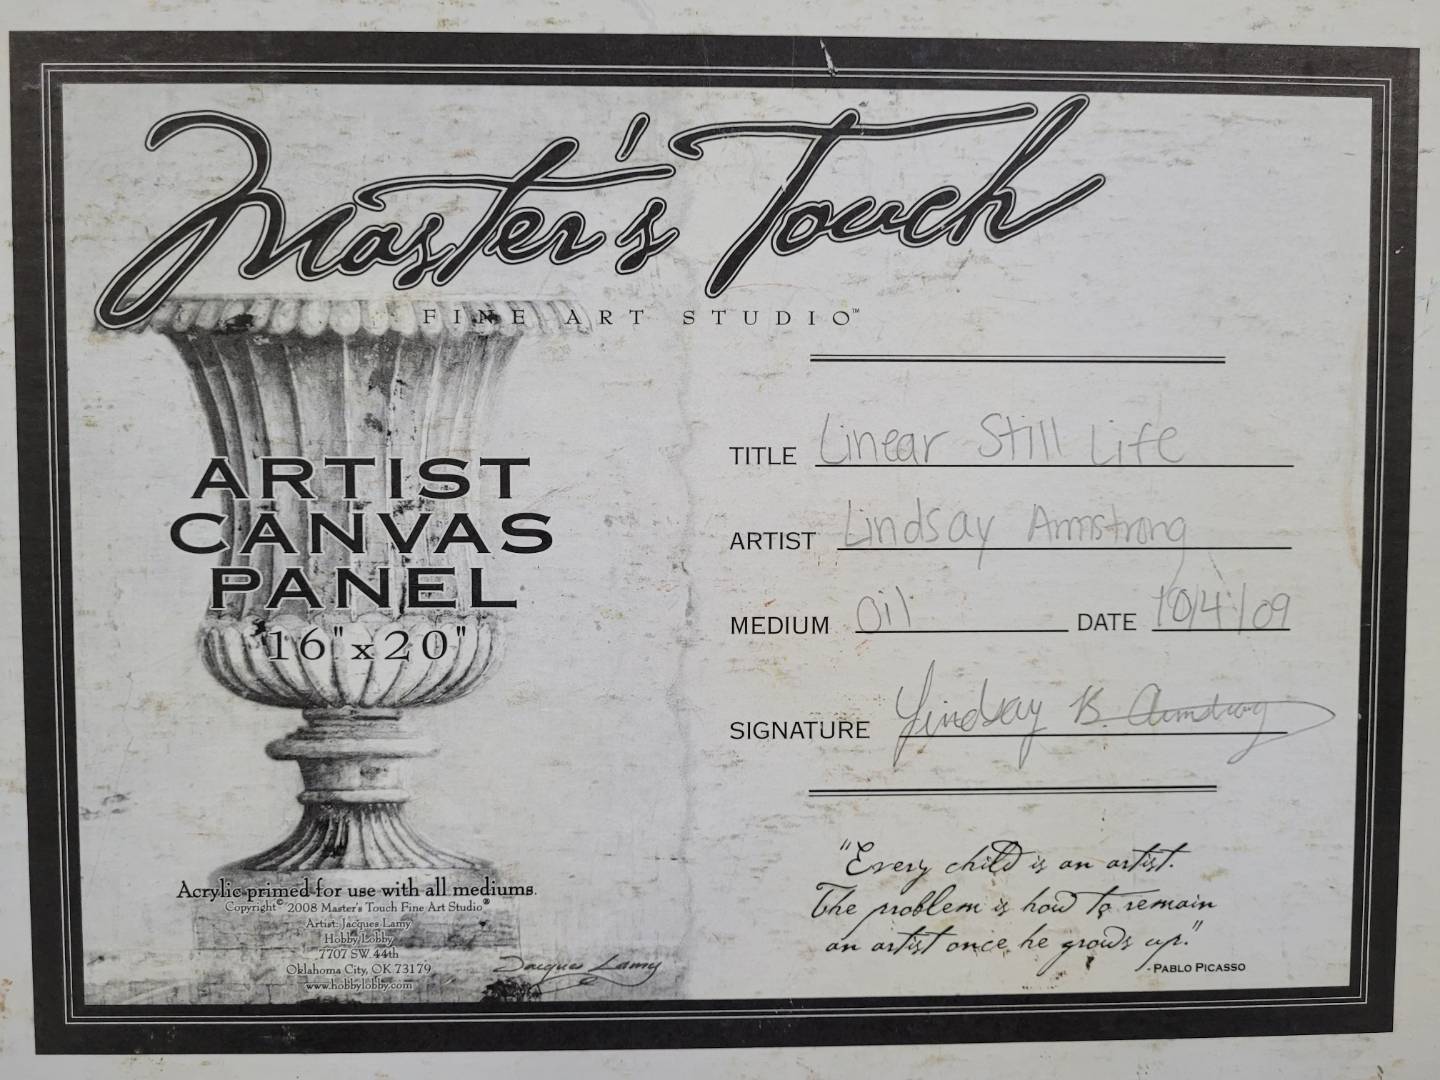 Master's Touch
FINE ART STUDIO™
ARTIST
CANVAS
PANEL
16"x20"
Acrylic primed for use with all mediums.
Copyright© 2008 Master's Touch Fine Art Studio®
Artist: Jacques Lamy
Hobby Lobby
7707 SW 44th
Oklahoma City, OK 73179
www.hobbylobby.com
Jacques Lamy
TITLE Linear Still Life
ARTIST Lindsay Armstrong
MEDIUM Oil DATE 10/4/09
SIGNATURE Lindsay B Armstrong
"Every child is an artist.
The problem is how to remain
an artist once he grows up."
- PABLO PICASSO